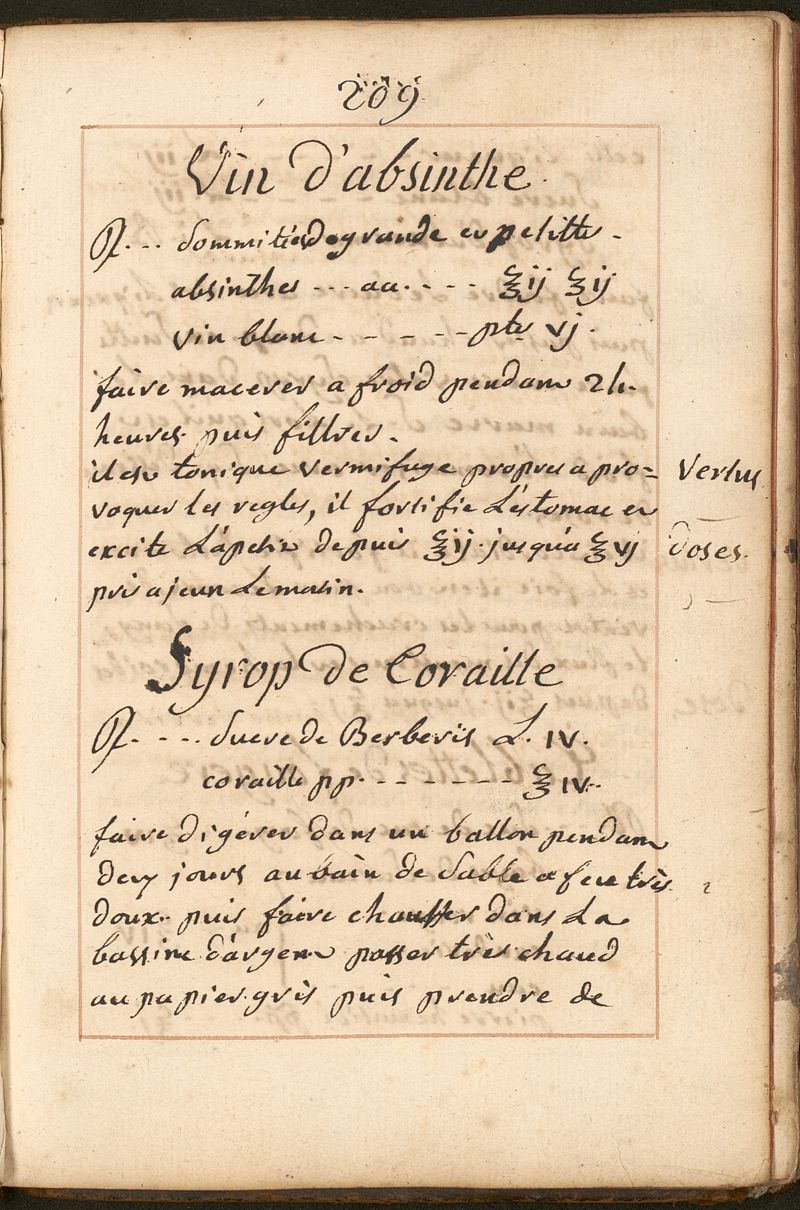 209
Vin d'absinthe
℞ --- Sommités de grande et petitte -
absinthes --- aa. - - - - ℥ij ℥ij
vin blanc - - - - - - ptes vj.
faire macerer a froid pendant 24
heures puis filtrer.
il est tonique vermifuge propres a pro= Vertus
voquer les regles, il fortifie L'éstomac et
excite L'ápetit depuis ℥ij jusqu'a ℥vj doses.
pris a jeun Le matin.
Syrop de Coraille
℞ - - - Sucre de Berberis L. IV.
coraille pp. - - - - - - - ℥ IV.
faire digérer dans un ballon pendant
deux jours au bain de Sable a feu très
doux puis faire chauffer dans La
bassine d'argent passer très chaud
au papier gris puis prendre de